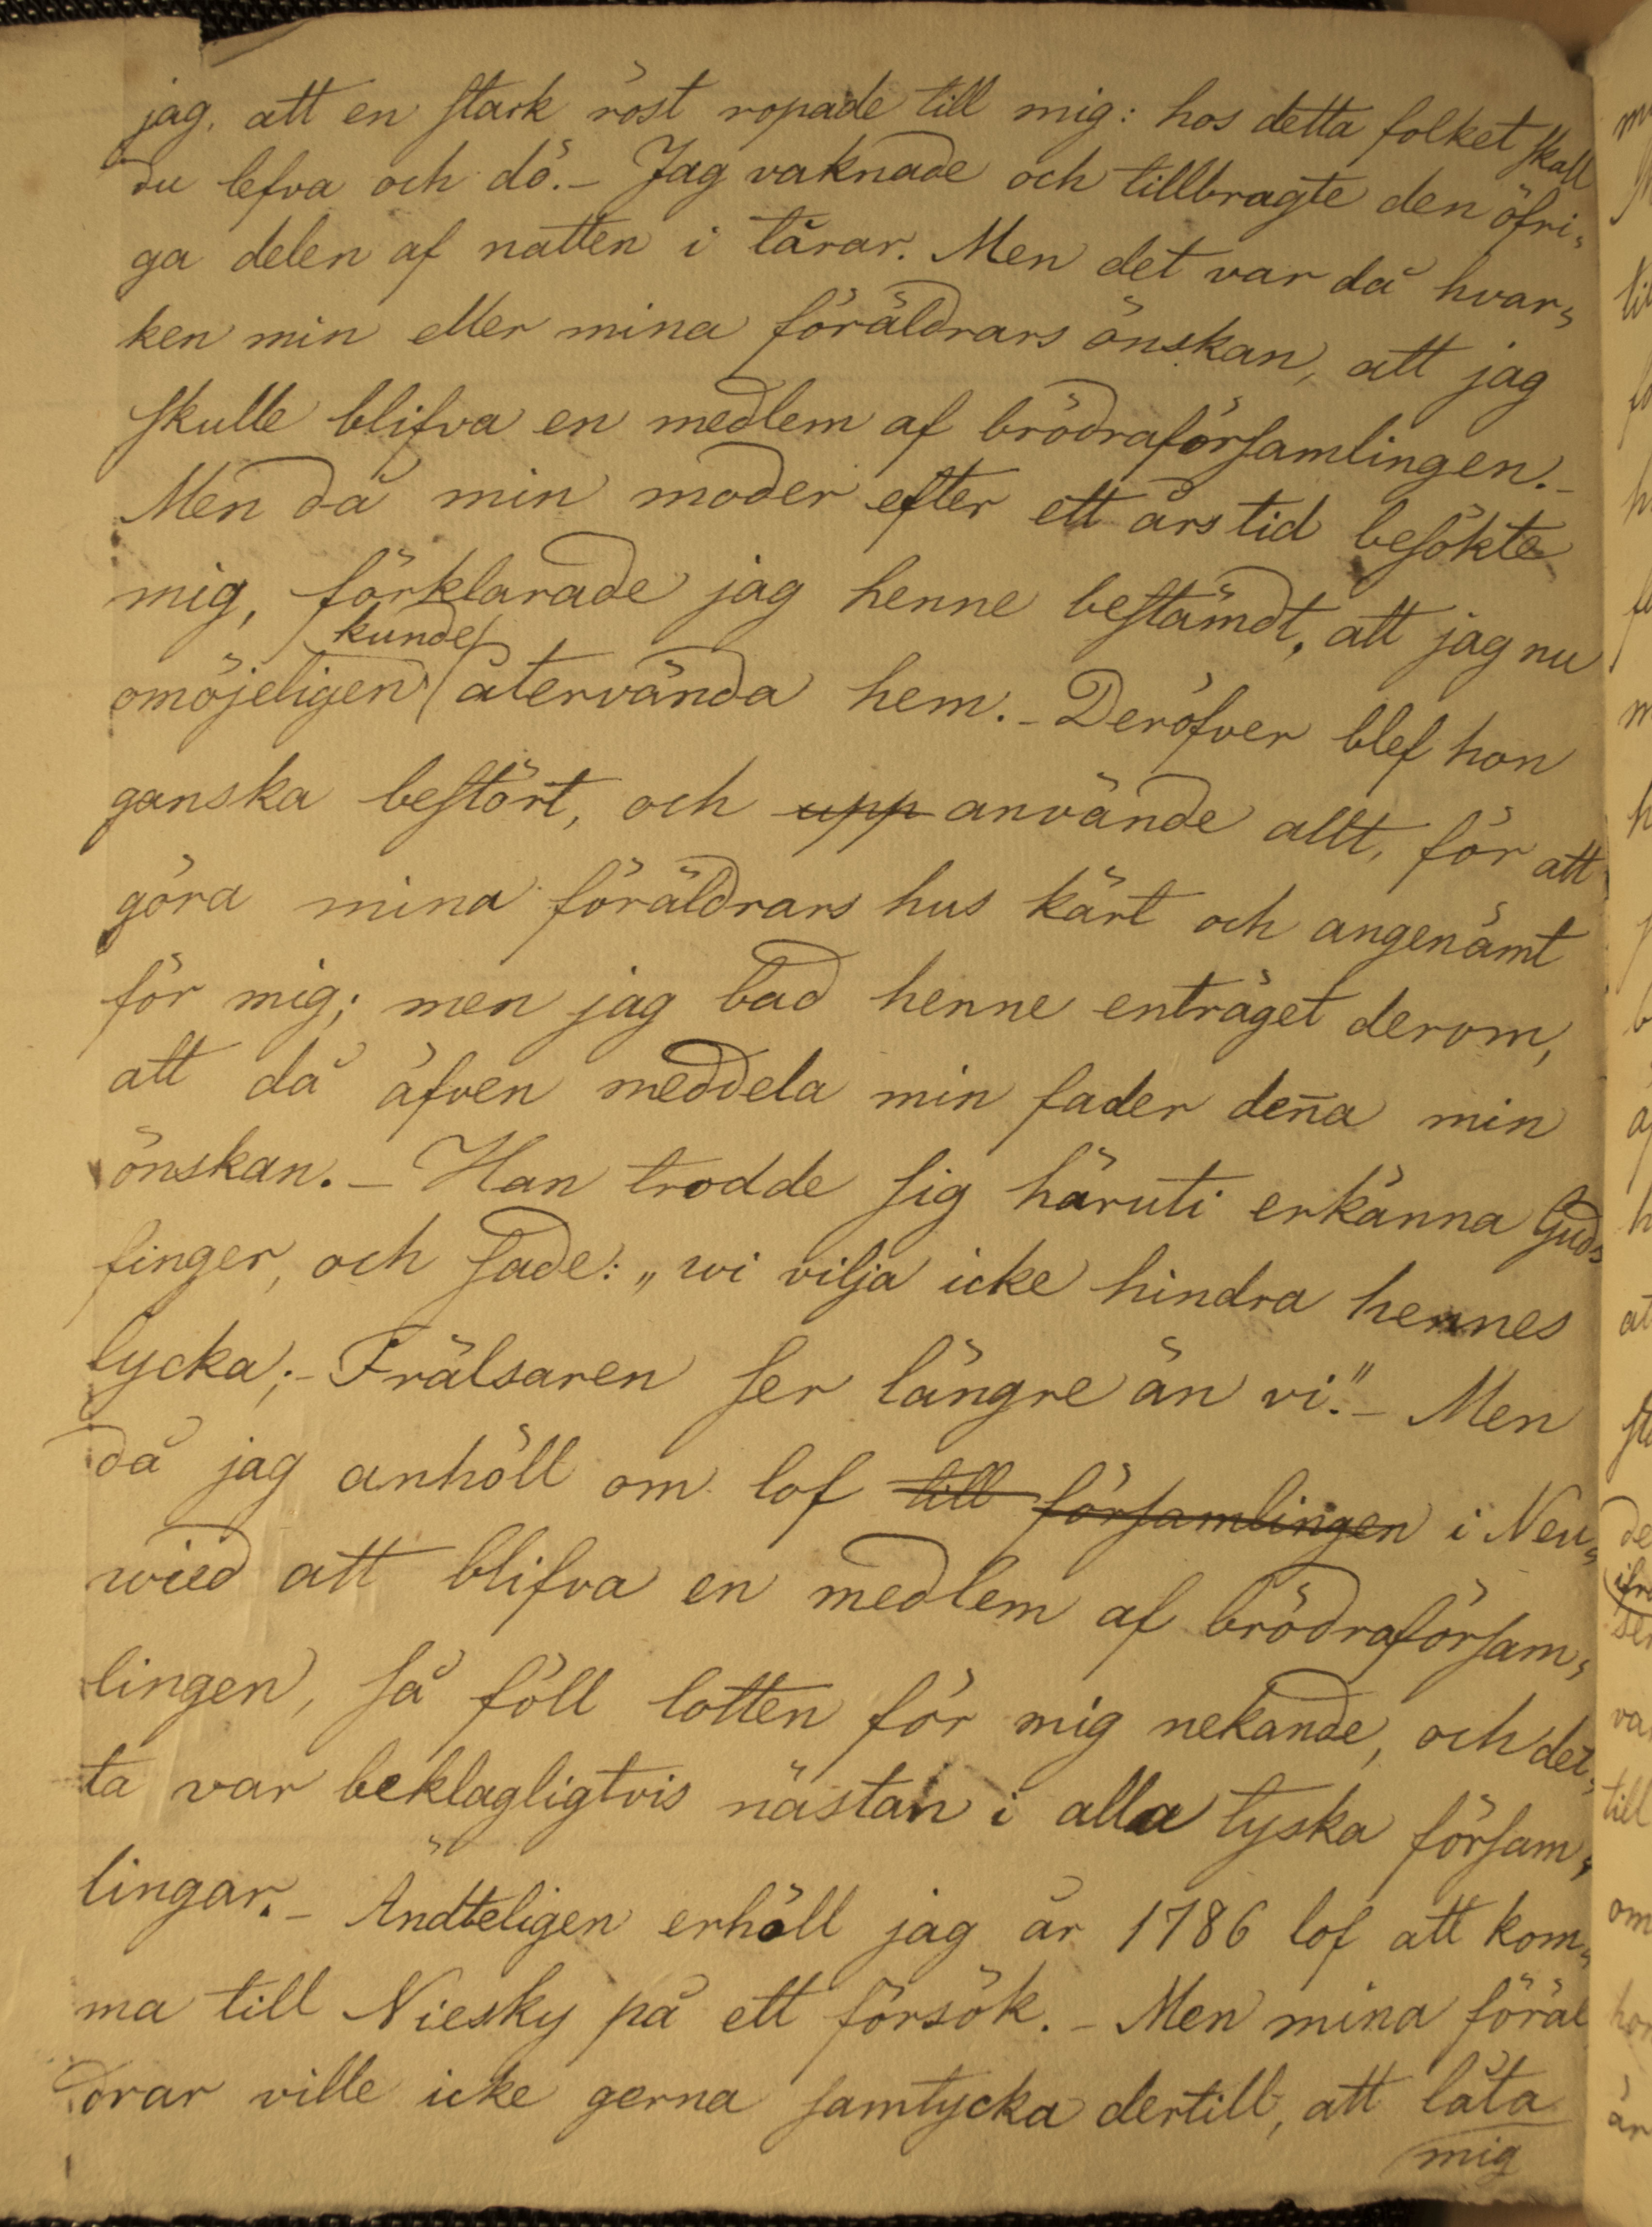 jag, att en stark röst ropade till mig: hos detta folket skall
du lefva och dö. – Jag vaknade och tillbragte den öfri„
ga delen af natten i tårar. Men det var då hvar„
ken min eller mina föräldrars önskan, att jag
skulle blifva en medlem af brödraförsamlingen. –
Men då min moder efter ett års tid besökte
mig, förklarade jag henne bestämdt, att jag nu
kunde
omöjeligen återvända hem. – Deröfver blef hon
ganska bestört, och upp använde allt, för att
göra mina föräldrars hus kärt och angenämt
för mig; men jag bad henne enträget derom,
att då äfven meddela min fader deña min
önskan. – Han trodde sig häruti erkänna Guds
finger, och sade: „wi vilja icke hindra hennes
lycka; – Frälsaren ser längre än vi." – Men
då jag anhöll om lof till församlingen i Neu„
wied att blifva en medlem af brödraförsam„
lingen, så föll lotten för mig nekande, och det„
ta var beklagligtvis nästan i alla tyska försam„
lingar. – Ändteligen erhöll jag år 1786 lof att kom„
ma till Niesky på ett försök. – Men mina föräl
drar ville icke gerna samtycka dertill, att låta
mig